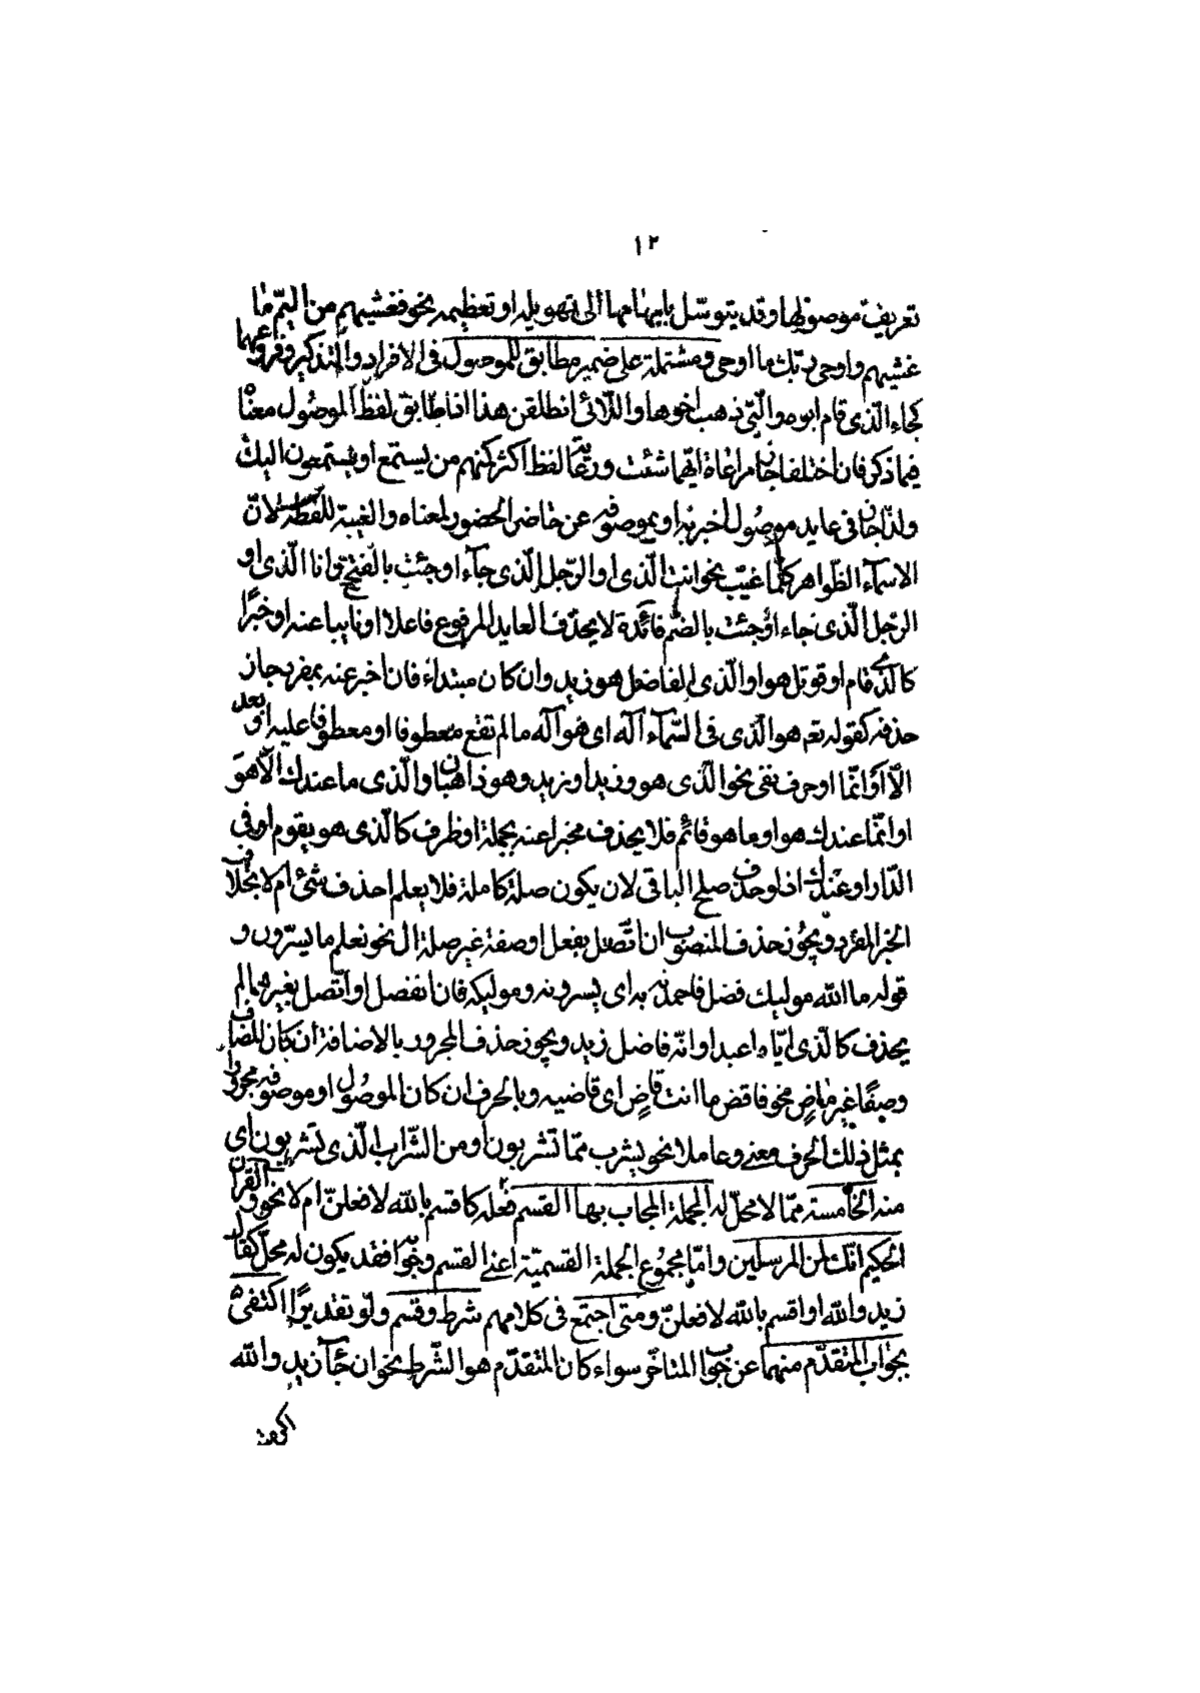 ١٢
تعريف موصولها وقد يتوسّل بابهامها الى تهويله او تعظيمه نحو فغشيهم من اليمّ ما
غشيهم واوحى ربّك ما اوحى ومشتملة على ضمير مطابق للموصول فى الافراد والتذكير وفروعهما
كجاء الّذى قام ابوه والّتى ذهب اخوها واللّائى انطلقن هذا اذا طابق لفظ الموصول معناه
فيما ذكر فان اختلفا جاز مراعاة ايّهما شئت ورعاية اللفظ اكثر كمنهم من يستمع او يستمعون اليك
ولذا جاز فى عايد موصول اخبر به او بموصوفه عن حاضر الحضور لمعناه والغيبة للفظه لانّ
الاسماء الظّواهر كلّها غيّب نحو انت الّذى او الرّجل الّذى جاء او جئت بالفتح وانا الّذى او
الرّجل الّذى جاء او جئت بالضّم فائدة لا يحذف العايد المرفوع فاعلا او نايبا عنه او خبرًا
كالّذى قام او قوتل هو او الّذى الفاضل هو زيد وان كان مبتداء فان اخبر عنه بمفرد جاز
حذفه كقوله تع هو الّذى فى السّماء آله اى هو آله ما لم تقع معطوفا او معطوفا عليه او بعد
الّا او انّما او حرف نفى نحو الّذى هو وزيد او زيد وهو ذاهبان والّذى ما عندك الّا هو
او انّما عندك هو او ما هو قائم فلا يحذف مخبرا عنه بجملة او ظرف كالّذى هو يقوم او فى
الدّار او عندك اذ لو حذف صلح الباقى لان يكون صلة كاملة فلا يعلم احذف شئ ام لا بخلاف
الخبر المفرد ويجوز حذف المنصوب ان اتّصل بفعل او صفة غير صلة ال نحو نعلم ما يسرّون و
قوله ما الله موليك فضل فاحمدنه به اى يسرونه وموليكه فان انفصل او اتّصل بغيرهما لم
يحذف كالّذى ايّاه اعبد او انّه فاضل زيد ويجوز حذف المجرور بالاضافة ان كان المضاف
وصفًا غير ماضٍ نحو فاقض ما انت قاضٍ اى قاضيه وبالحرف ان كان الموصول او موصوفه مجرورا
بمثل ذلك الحرف معنى وعاملا نحو يشرب ممّا تشربون او من الشّراب الّذى تشربون اى
منه الخامسة ممّا لا محلّ له الجملة المجاب بها القسم فعله كاقسم بالله لافعلنّ ام لا نحو والقران
الحكيم انّك لمن المرسلين وامّا مجموع الجملة القسميّة اعنى القسم وجوابه فقد يكون له محلّ كقال
زيد والله او اقسم بالله لافعلنّ ومتى اجتمع فى كلامهم شرط وقسم ولو تقديرًا اكتفى
بجواب المتقدّم منهما عن جواب المتاخّر سواء كان المتقدّم هو الشّرط نحو ان جاء زيد والله